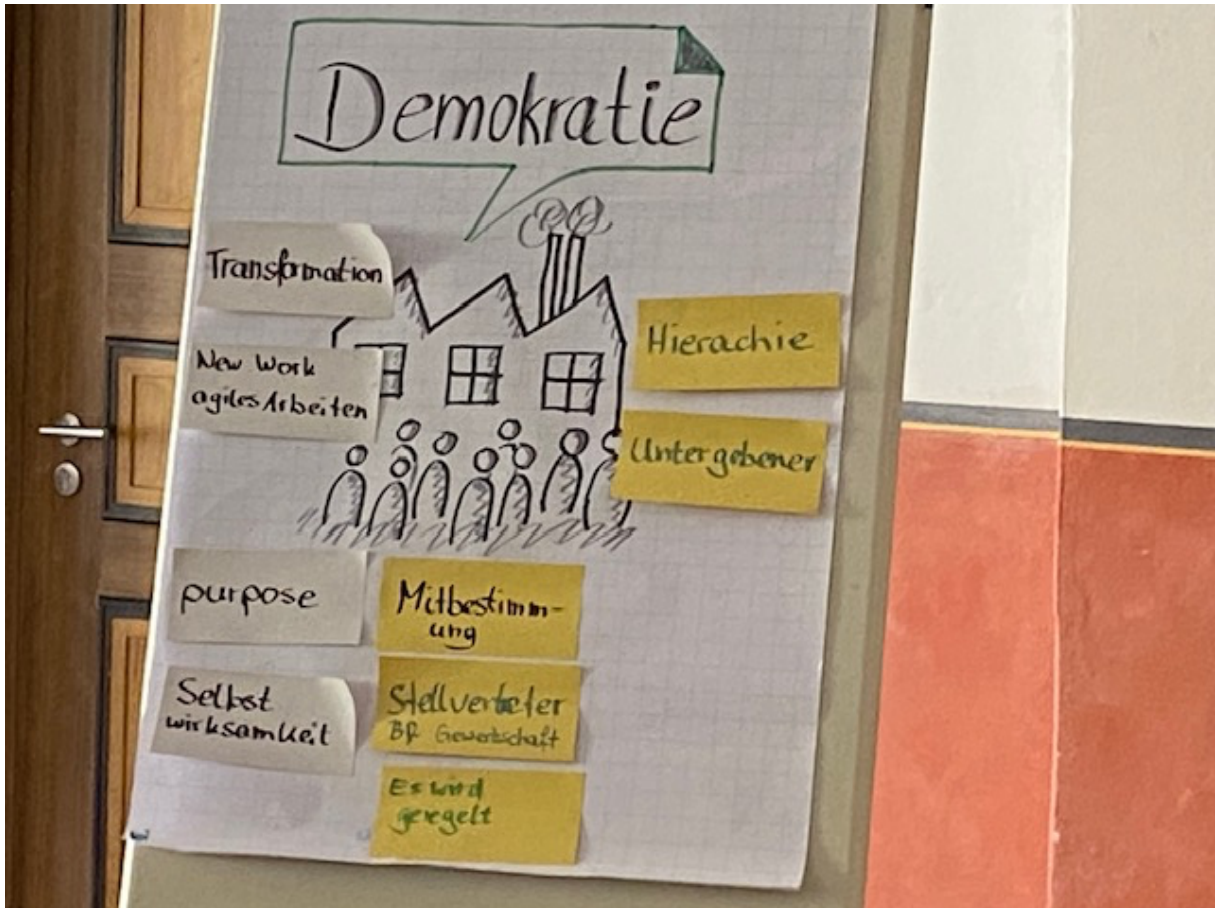 Demokratie
Transformation
New Work
agiles Arbeiten
Hierachie
Untergebener
purpose
Selbst
wirksamkeit
Mitbestimm-
ung
Stellvertreter
BR Gewerkschaft
Es wird
geregelt